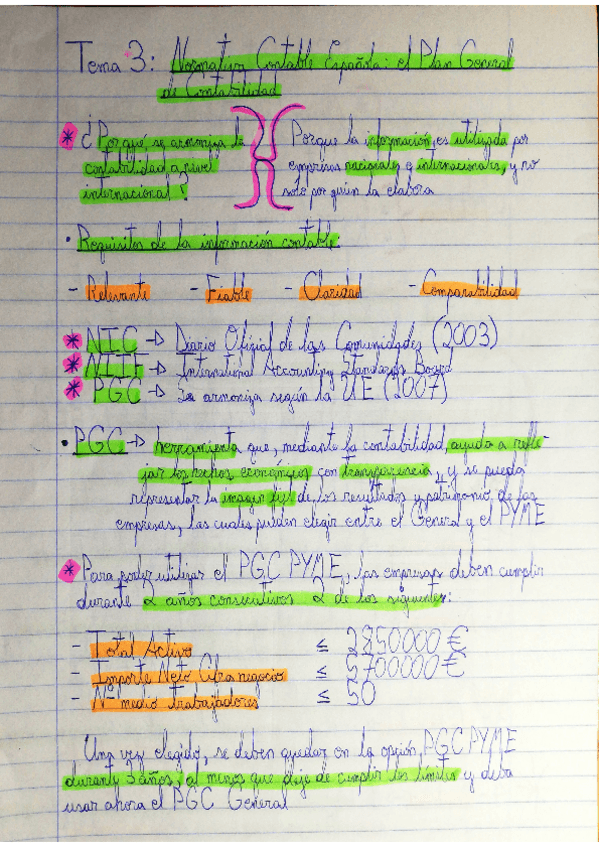 Tema 3: Normativa Contable Española: el Plan General
de Contabilidad
* ¿Porqué se armoniza la
contabilidad a nivel
internacional?
Porque la información, es utilizada por
empresas nacionales e internacionales, y no
solo por quien la elabora
· Requisitos de la información contable:
- Relevante - Fiable - Claridad - Comparabilidad
* NIC → Diario Oficial de las Comunidades (2003)
* NIIF → International Accounting Standards Board
* PGC → Se armoniza según la UE (2007)
· PGC → herramienta que, mediante la contabilidad, ayuda a refle-
jar los hechos económicos con transparencia, y se pueda
representar la imagen fiel de los resultados y patrimonio de las
empresas, las cuales pueden elegir entre el General y el PYME
* Para poder utilizar el PGC PYME, las empresas deben cumplir
durante 2 años consecutivos 2 de los siguientes:
- Total Activo ≤ 2850000 €
- Importe Neto Cifra negocio ≤ 5700000 €
- Nº medio trabajadores ≤ 50
Una vez elegido, se deben quedar en la opción PGC PYME
durante 3 años, al menos que deje de cumplir los límites y deba
usar ahora el PGC General